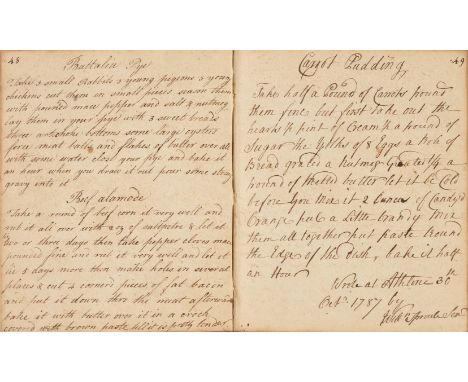 48
Battalia Pye
Take 3 small Rabbits 3 young pigeons 3 young
chickens cut them in small pieces season them
with pounded mace pepper and salt & nutmeg
lay them in your pye with 3 sweet breads
three artichoke bottoms some large oysters
force meat balls and flakes of butter over all
with some water close your pye and bake it
an hour when you draw it out pour some strong
gravy into it
Beef alamode
Take a round of beef corn it very well and
rub it all over with saltpetre & let it
two or three days then take pepper cloves mace
pounded fine and rub it very well and let it
lie 3 days more then make holes in several
places & cut 4 cornerd pieces of fat bacon
and put it down thro the meat afterwards
bake it with butter over it in a crock
covered with brown paste till it is pretty tender
49
Carrot Pudding
Take half a Pound of Carrots pound
them fine but first take out the
hearts pint of Cream a pound of
Sugar the Yolks of 8 Eggs a
Bread grated a Nutmeg Grated
pound of Melted butter let it be Cold
before You Mix it 2 Ounces of Candyd
Orange put a Little brandy Mix
them all together put paste round
the Edge of the dish, bake it half
an Hour
Wrote at Athlone 30th
Octr. 1757 by
Willm Sproule Senr